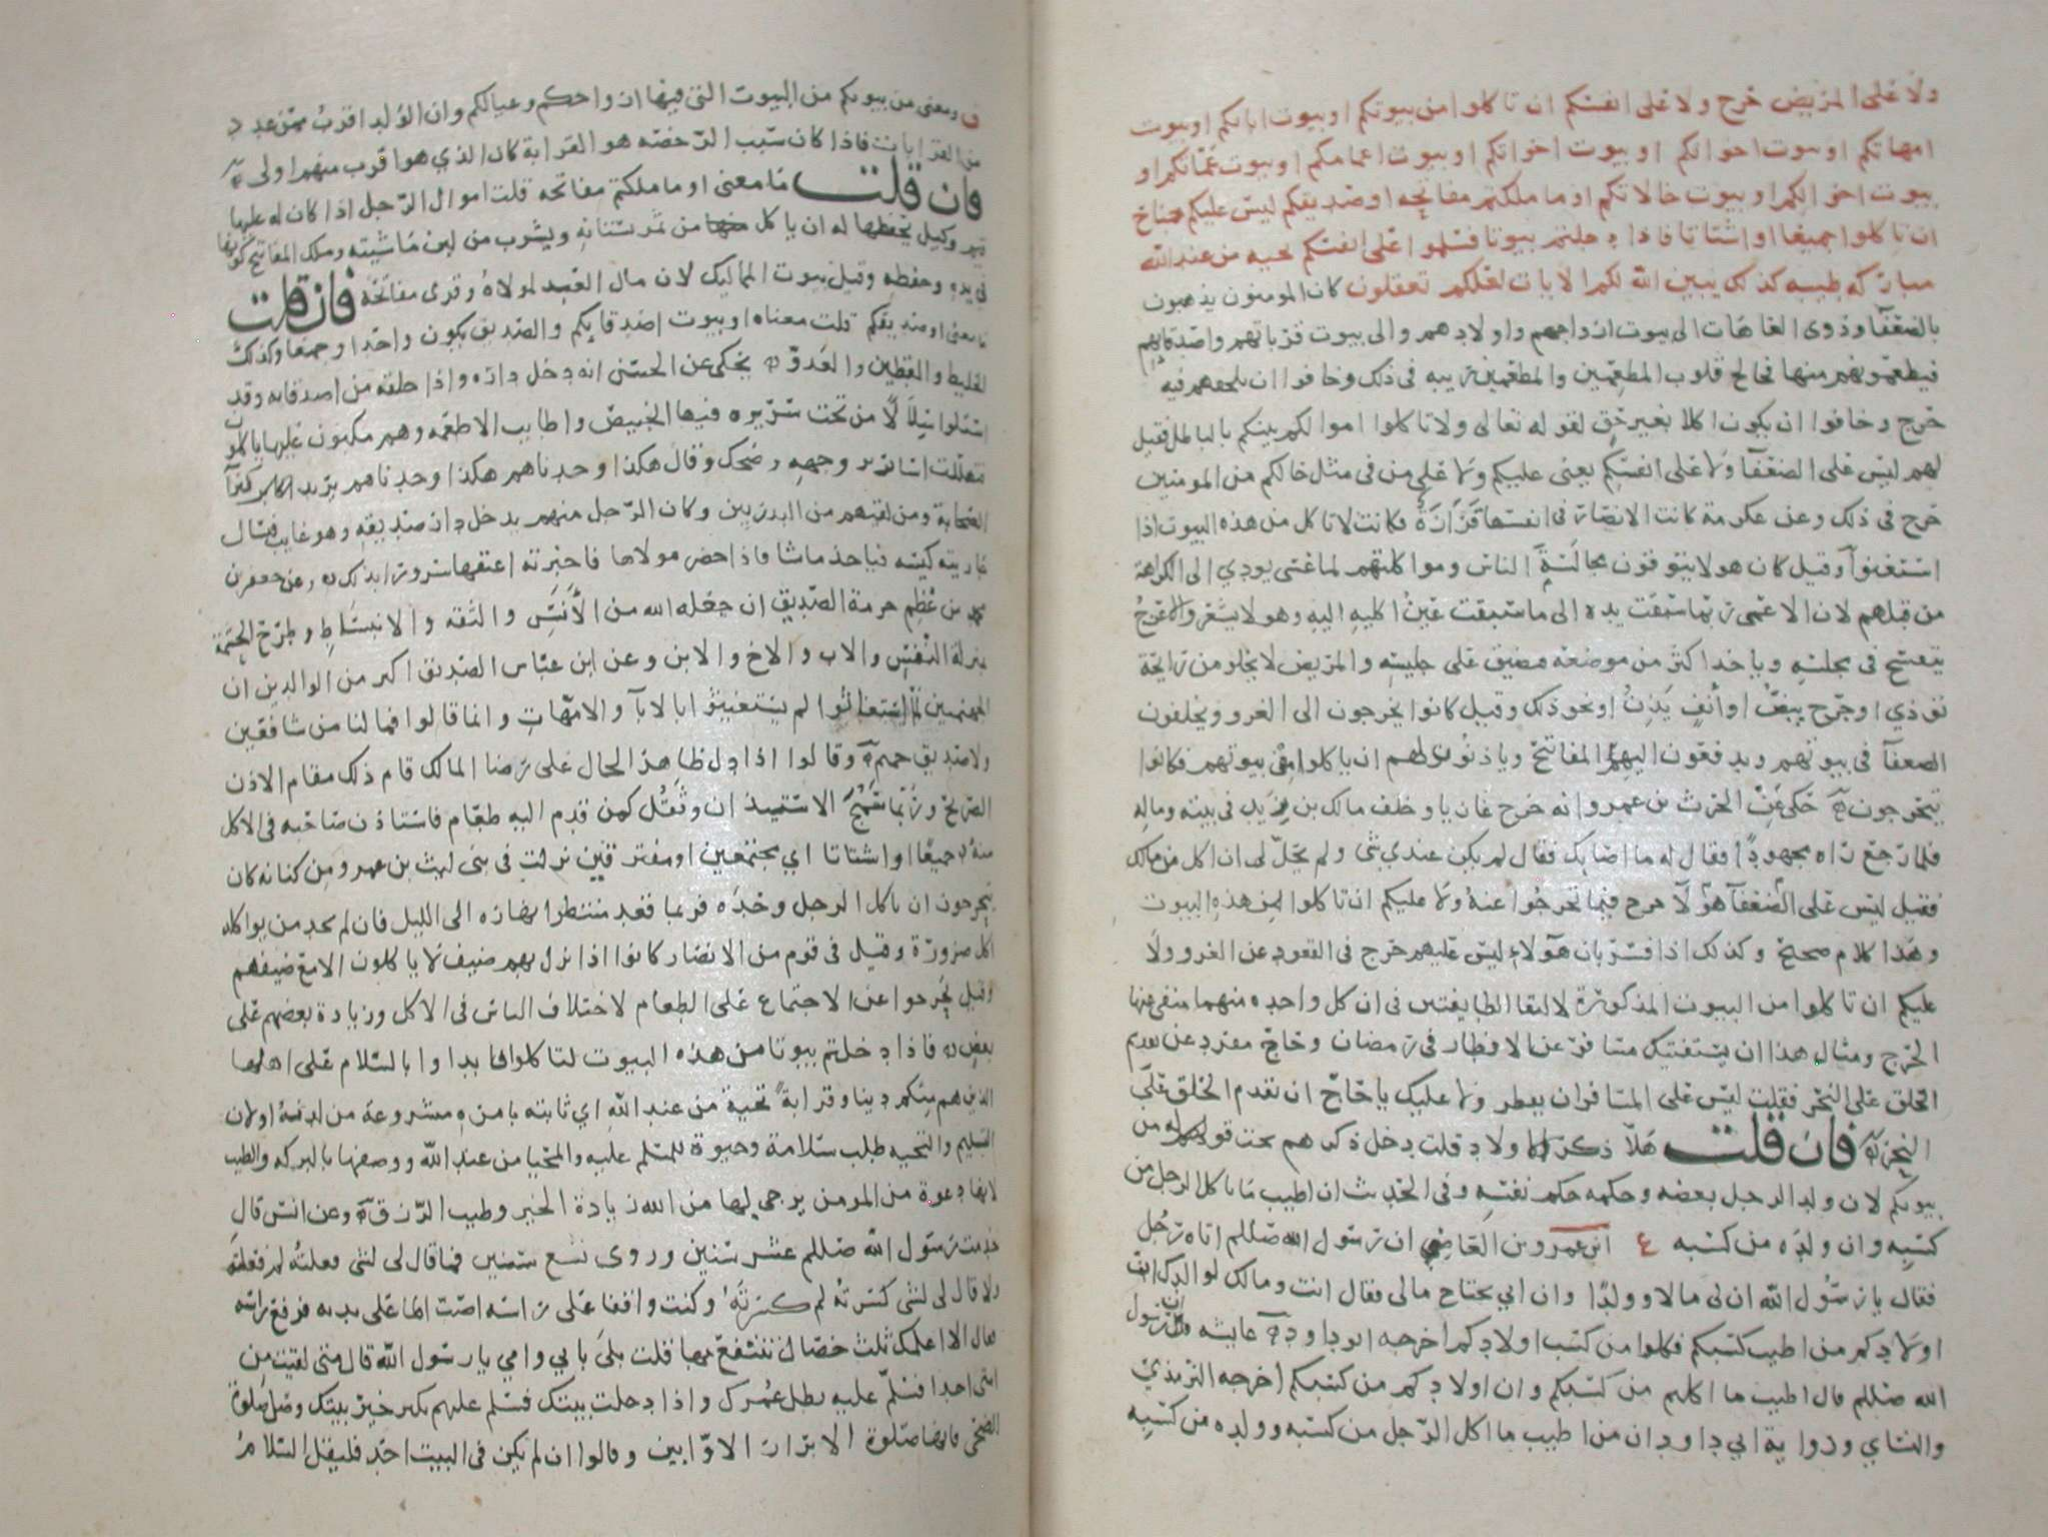 ولا على المريض حرج ولا على انفسكم ان تاكلوا من بيوتكم او بيوت ابائكم او بيوت
امهاتكم او بيوت اخوانكم او بيوت اخواتكم او بيوت اعمامكم او بيوت عماتكم او
بيوت اخوالكم او بيوت خالاتكم او ما ملكتم مفاتحه او صديقكم ليس عليكم جناح
ان تاكلوا جميعا او اشتاتا فاذا دخلتم بيوتا فسلموا على انفسكم تحيه من عند الله
مباركه طيبه كذلك يبين الله لكم الايات لعلكم تعقلون كان المومنون يذهبون
بالضعفآ وذوى العاهات الى بيوت ازواجهم واولادهم والى بيوت قراباتهم واصدقايهم
فيطعمونهم منها فخالج قلوب المطعمين والمطعمين ريبه فى ذلك وخافوا ان يلحقهم فيه
حرج وخافوا ان يكون اكلا بغير حق لقوله تعالى ولا تاكلوا اموالكم بينكم بالباطل فقيل
لهم ليس على الضعفآ ولا على انفسكم يعنى عليكم ولا على من فى مثل حالكم من المومنين
حرج فى ذلك وعن عكرمة كانت الانصار فى انفسها قزازة فكانت لا تاكل من هذه البيوت اذا
استغنوا وقيل كان هولا يتوقون مجالسة الناس ومواكلتهم لما عسى يودي الى الكراهة
من قبلهم لان الاعمى ربما سبقت يده الى ما سبقت عين اكليه اليه وهو لا يشعر والاعرج
يتفسح فى مجلسه وياخذ اكثر من موضعه فيضيق على جليسه والمريض لا يخلو من رايحة
توذي او جرح يبض او أنف يذن او نحو ذلك وقيل كانوا يخرجون الى الغزو ويخلفون
الضعفآ فى بيوتهم ويدفعون اليهم المفاتيح وياذنون لهم ان ياكلوا من بيوتهم فكانوا
يتحرجون حكى عن الحرث بن عمرو انه خرج غازيا وخلف مالك بن زيد فى بيته وماله
فلما رجع راه مجهودا فقال له ما اصابك فقال لم يكن عندي شى ولم يحل لى ان اكل من مالك
فقيل ليس على الضعفآ هولآ حرج فيما تحرجوا عنه ولا عليكم ان تاكلوا من هذه البيوت
وهذا كلام صحيح وكذلك اذا فسر بان هولاء ليس عليهم حرج فى القعود عن الغزو ولا
عليكم ان تاكلوا من البيوت المذكورة لالتقا الطايفتين فى ان كل واحده منهما منفى عنها
الحرج ومثال هذا ان يستفتيك مسافر عن الافطار فى رمضان وحاج مفرد عن تقديم
الحلق على النحر فقلت ليس على المسافر ان يفطر ولا عليك ياحاج ان تقدم الحلق على
النحر فان قلت هلا ذكر الاولاد قلت دخل ذكرهم تحت قوله من
بيوتكم لان ولد الرجل بعضه وحكمه حكم نفسه وفى الحديث ان اطيب ما ياكل الرجل من
كسبه وان ولده من كسبه ع ابن عمرو بن العاص ان رسول الله صللم اتاه رجل
فقال يارسول الله ان لى مالا وولدا وان ابى يحتاج مالى فقال انت ومالك لوالدك ان
اولادكم من اطيب كسبكم فكلوا من كسب اولادكم اخرجه ابو داود عايشه ان رسول
الله صللم قال اطيب ما اكلتم من كسبكم وان اولادكم من كسبكم اخرجه الترمذي
والنساي وروايه ابي داود ان من اطيب ما اكل الرجل من كسبه وولده من كسبه
ومعنى من بيوتكم من البيوت التى فيها ازواجكم وعيالكم وان الولد اقرب ممن عدد
من القرابات فاذا كان سبب الرخصه هو القرابة كان الذي هو اقرب منهم اولى
فان قلت ما معنى او ما ملكتم مفاتحه قلت اموال الرجل اذا كان له عليها
قيم ووكيل يحفظها له ان ياكل من ثمر بستانه ويشرب من لبن ماشيته وملك المفاتيح كونها
فى يده وحفظه وقيل بيوت المماليك لان مال العبد لمولاه وقرى مفاتحه فان قلت
ما معنى او صديقكم قلت معناه او بيوت اصدقايكم والصديق يكون واحدا وجمعا وكذلك
الخليط والقطين والعدو يحكى عن الحسن انه دخل داره واذا حلقه من اصدقايه وقد
استلوا سلالا من تحت سريره فيها الخبيص واطايب الاطعمه وهم مكبون عليها ياكلون
فتهللت اسارير وجهه وضحك وقال هكذا وجدناهم هكذا وجدناهم يريد اكابر كبرآ
الصحابة ومن لقيهم من البدريين وكان الرجل منهم يدخل دار صديقه وهو غايب فيسال
جاريته كيسه فياخذ ما شا فاذا حضر مولاها فاخبرته اعتقها سرورا بذلك وعن جعفر بن
محمد من عظم حرمة الصديق ان جعله الله من الأنس والثقه والانبساط وطرح الحشمة
بمنزلة النفس والاب والاخ والابن وعن ابن عباس الصديق اكبر من الوالدين ان
الجهنميين لما استغاثوا لم يستغيثوا بالابآ والامهات وانما قالوا فما لنا من شافعين
ولا صديق حميم وقالوا اذا دل ظاهر الحال على رضا المالك قام ذلك مقام الاذن
الصريح وربما سمج الاستيذان وثقل كمن قدم اليه طعام فاستاذن صاحبه فى الاكل
منه جميعا او اشتاتا اي مجتمعين او مفترقين نزلت فى بنى ليث بن عمرو من كنانه كان
يتحرجون ان ياكل الرجل وحده فربما قعد منتظرا نهاره الى الليل فان لم يجد من يواكله
اكل ضرورة وقيل فى قوم من الانصار كانوا اذا نزل بهم ضيف لا ياكلون الا مع ضيفهم
وقيل تحرجوا عن الاجتماع على الطعام لاختلاف الناس فى الاكل وزيادة بعضهم على
بعض فاذا دخلتم بيوتا من هذه البيوت لتاكلوا فابداوا بالسلام على اهلها
الذين هم منكم دينا وقرابة تحية من عند الله اي ثابته بامره مشروعة من لدنه او لان
التسليم والتحيه طلب سلامة وحيوة للمسلم عليه والمحيا من عند الله ووصفها بالبركه والطيب
لانها دعوة من المومن يرجى بها من الله زيادة الخير وطيب الرزق وعن انس قال
خدمت رسول الله صللم عشر سنين وروى تسع سنين فما قال لى لشى فعلته لم فعلته
ولا قال لى لشى كسرته لم كسرته وكنت واقفا على راسه اصب الما على يديه فرفع راسه
فقال الا اعلمك ثلث خصال تنتفع بها قلت بلى بابي وامي يارسول الله قال متى لقيت من
امتى احدا فسلم عليه يطل عمرك واذا دخلت بيتك فسلم عليهم يكثر خير بيتك وصل صلوة
الضحى فانها صلوة الابرار الاوابين وقالوا ان لم يكن فى البيت احد فليقل السلام